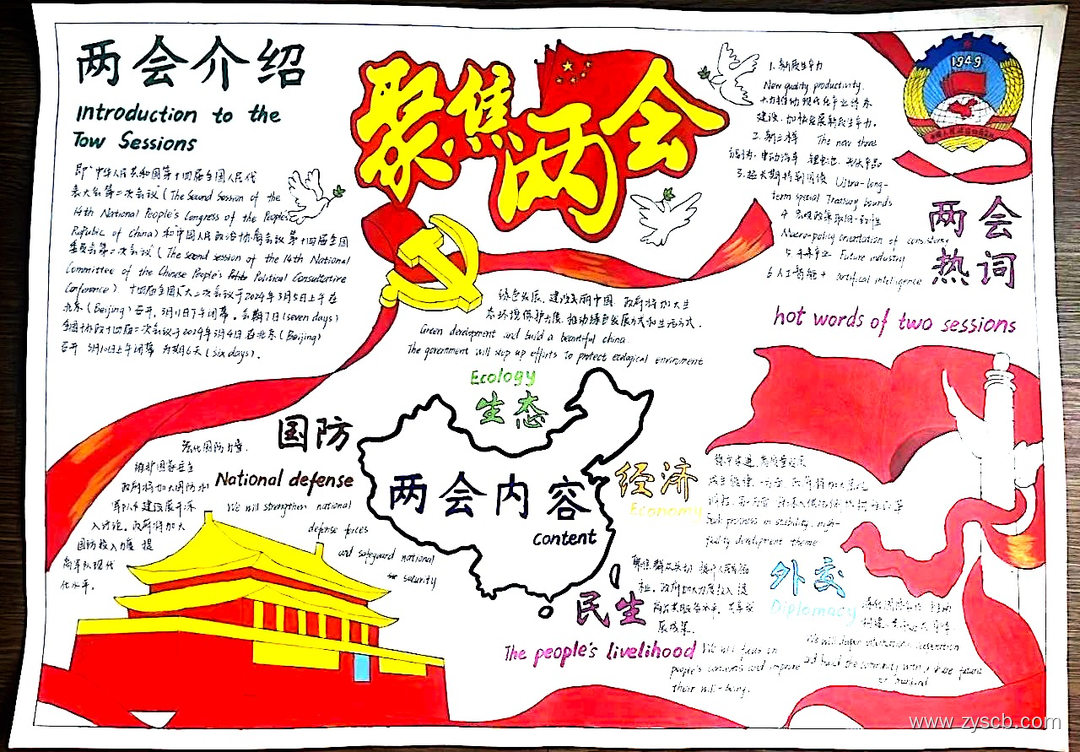 两会介绍
Introduction to the
Tow Sessions
即"中华人民共和国第十四届全国人民代
表大会第二次会议（The Second Session of the
14th National People's Congress of the People's
Republic of China）和中国人民政治协商会议第十四届全国
委员会第二次会议（The second session of the 14th National
Committee of the Chinese People's Political Consultative
Conference）. 十四届全国人大二次会议于2024年3月5日上午在
北京（Beijing）召开，3月11日下午闭幕，会期7日(seven days)
全国协政十四届二次会议于2024年3月4日在北京（Beijing）
召开 3月10日上午闭幕 为期6天(six days).
聚焦两会
1949
1. 新质生产力
New quality productivity.
大力推动现代化产业体系
建设，加快发展新质生产力.
2. 新三样 The new three
电动汽车 锂电池 光伏产品
3. 超长期特别国债 Ultra-long-
term special Treasury bounds
4. 宏观政策取向一致性
Macro-policy orientation of consistency
5. 未来产业 Future industry
6. 人工智能+ artificial intelligence
两会
热词
hot words of two sessions
绿色发展，建设美丽中国 政府将加大生
态环境保护力度，推动绿色发展方式和生活方式.
Green development and build a beautiful china
The government will step up efforts to protect ecological environment
Ecology
生态
国防
National defense
强化国防力量，
维护国家安全
政府将加大国防和
军队建设展开深
入讨论，政府将加大
国防投入力度 提
高军队现代
化水平.
We will strengthen national
defense forces
and safeguard national
security
两会内容
content
经济
Economy
稳中求进
high-
quality development theme
民生
The people's livelihood
We will focus on
people's concerns and improve
their well-being.
外交
Diplomacy
We will deepen international
and build the community with a share future
for mankind
www.zyscb.com